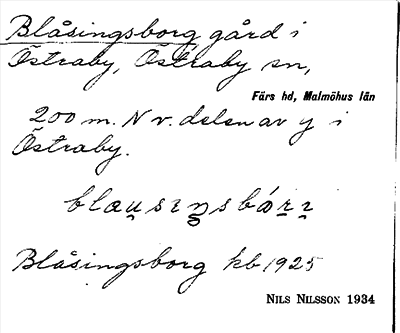 Blåsingsborg gård i
Östraby, Östraby sn,
Färs hd, Malmöhus län
200 m. N v. delen av y i
Östraby.
Blåsingsborg kb 1925
NILS NILSSON 1934